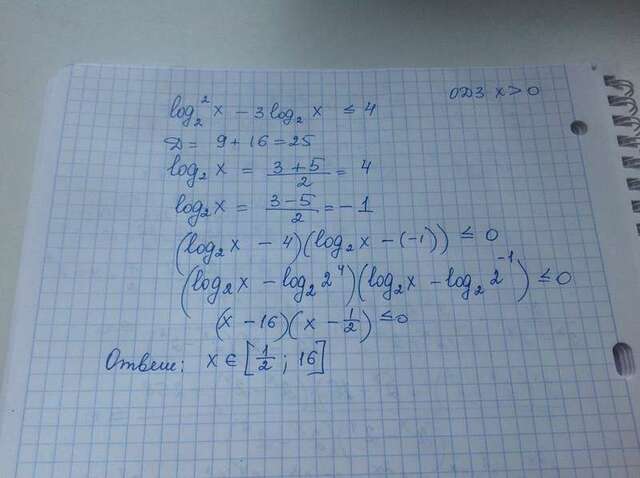 log₂²x − 3log₂x ≤ 4 ОДЗ x > 0
D = 9 + 16 = 25
log₂x = (3 + 5)/2 = 4
log₂x = (3 − 5)/2 = −1
(log₂x − 4)(log₂x − (−1)) ≤ 0
(log₂x − log₂2⁴)(log₂x − log₂2⁻¹) ≤ 0
(x − 16)(x − 1/2) ≤ 0
Ответ: x ∈ [1/2 ; 16]